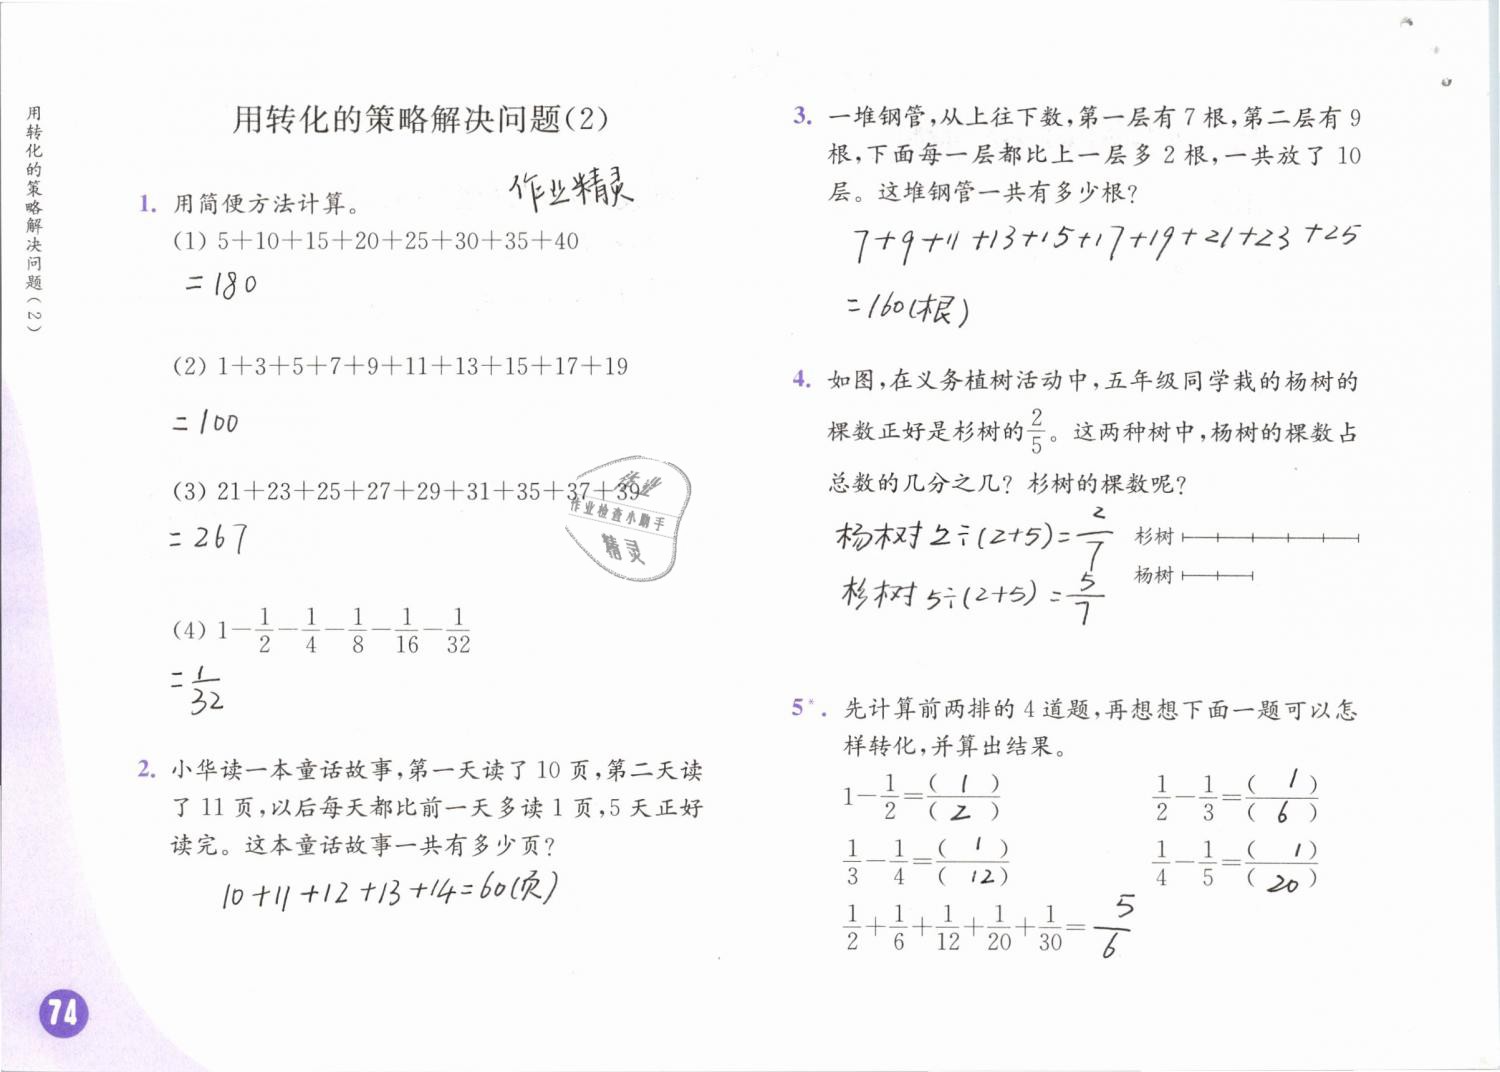 用转化的策略解决问题(2)
用转化的策略解决问题(2)
作业精灵
1. 用简便方法计算。
(1) 5+10+15+20+25+30+35+40
=180
(2) 1+3+5+7+9+11+13+15+17+19
=100
(3) 21+23+25+27+29+31+35+37+39
=267
作业
作业检查小助手
精灵
(4) 1-1/2-1/4-1/8-1/16-1/32
=1/32
2. 小华读一本童话故事,第一天读了10页,第二天读
了11页,以后每天都比前一天多读1页,5天正好
读完。这本童话故事一共有多少页?
10+11+12+13+14=60(页)
74
3. 一堆钢管,从上往下数,第一层有7根,第二层有9
根,下面每一层都比上一层多2根,一共放了10
层。这堆钢管一共有多少根?
7+9+11+13+15+17+19+21+23+25
=160(根)
4. 如图,在义务植树活动中,五年级同学栽的杨树的
棵数正好是杉树的2/5。这两种树中,杨树的棵数占
总数的几分之几?杉树的棵数呢?
杨树 2÷(2+5)=2/7 杉树
杨树
杉树 5÷(2+5)=5/7
5*. 先计算前两排的4道题,再想想下面一题可以怎
样转化,并算出结果。
1-1/2=(1)/(2) 1/2-1/3=(1)/(6)
1/3-1/4=(1)/(12) 1/4-1/5=(1)/(20)
1/2+1/6+1/12+1/20+1/30=5/6